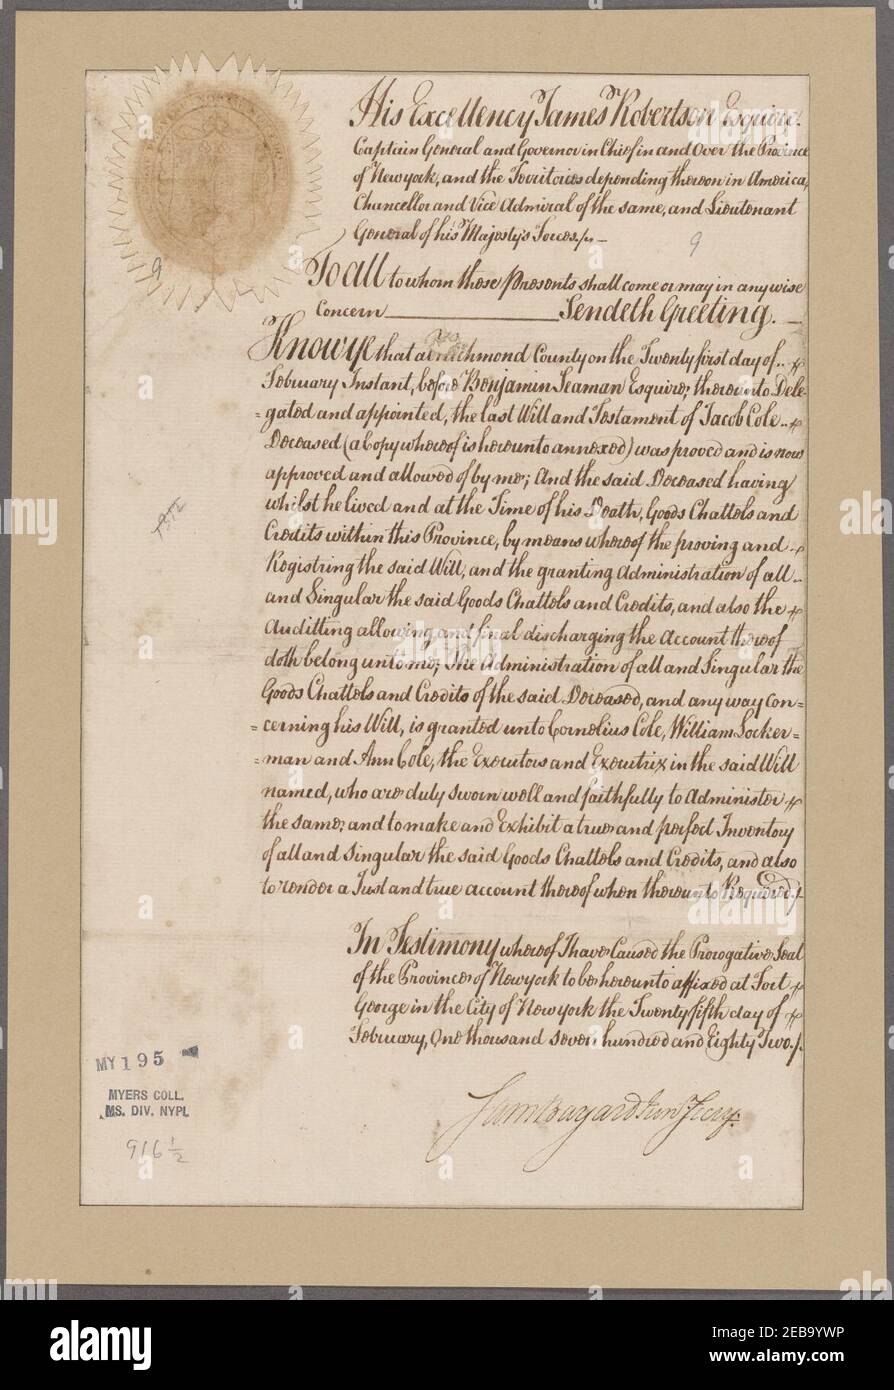 His Excellency James Robertson Esquire.
Captain General and Governor in Chief in and Over the Province
of New york, and the Territories depending thereon in America,
Chancellor and Vice Admiral of the same, and Lieutenant
General of his Majesty's Forces./.—
9
9
To all to whom these Presents shall come or may in any wise
Concern ——— Sendeth Greeting. —
Know ye that at Richmond County on the Twenty first day of
February Instant, before Benjamin Seaman Esquire; thereunto Dele=
=gated and appointed, the last Will and Testament of Jacob Cole
Deceased (a Copy whereof is hereunto annexed) was proved and is now
approved and allowed of by me; And the said Deceased having
whilst he lived and at the Time of his Death, Goods Chattels and
Credits within this Province, by means whereof the proving and
Registring the said Will, and the granting Administration of all
and Singular the said Goods Chattels and Credits, and also the
Auditting allowing and final discharging the Account thereof
doth belong unto me; The Administration of all and Singular the
Goods Chattels and Credits of the said Deceased, and any way con=
=cerning his Will, is granted unto Cornelius Cole, William Locker=
=man and Ann Cole, the Executors and Executrix in the said Will
named, who are duly sworn well and faithfully to Administer
the same; and to make and Exhibit a true and perfect Inventory
of all and Singular the said Goods Chattels and Credits, and also
to render a Just and true account thereof when thereunto Required./.
In Testimony whereof I have Caused the Prerogative Seal
of the Province of New york to be hereunto affixed at Fort
George in the City of New york the Twenty fifth day of
February, One thousand seven hundred and Eighty Two./.
Sam Bayard Jun Secry.
MY 195
MYERS COLL.
MS. DIV. NYPL
916 1/2
alamy
2EB9YWP
www.alamy.com